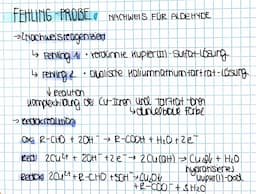 FEHLING-PROBE: NACHWEIS FÜR ALDEHYDE
→ Nachweisreagenzien
↳ Fehling 1: verdünnte Kupfer(II)-Sulfat-Lösung
↳ Fehling 2: alkalische Kaliumnatriumtartrat-Lösung
↓ Reaktion
Komplexbildung der Cu-Ionen und Tartrat-Ionen
↳ dunkelblaue Farbe
→ Redoxreaktion
Ox: R-CHO + 2OH⁻ → R-COOH + H₂O + 2e⁻
Red: 2Cu²⁺ + 2OH⁻ + 2e⁻ → 2Cu(OH) → Cu₂O↓ + H₂O
Kupfer(I)-oxid
Redox: 2Cu²⁺ + R-CHO + 5OH⁻ → Cu₂O
+ R-COO⁻ + 3H₂O